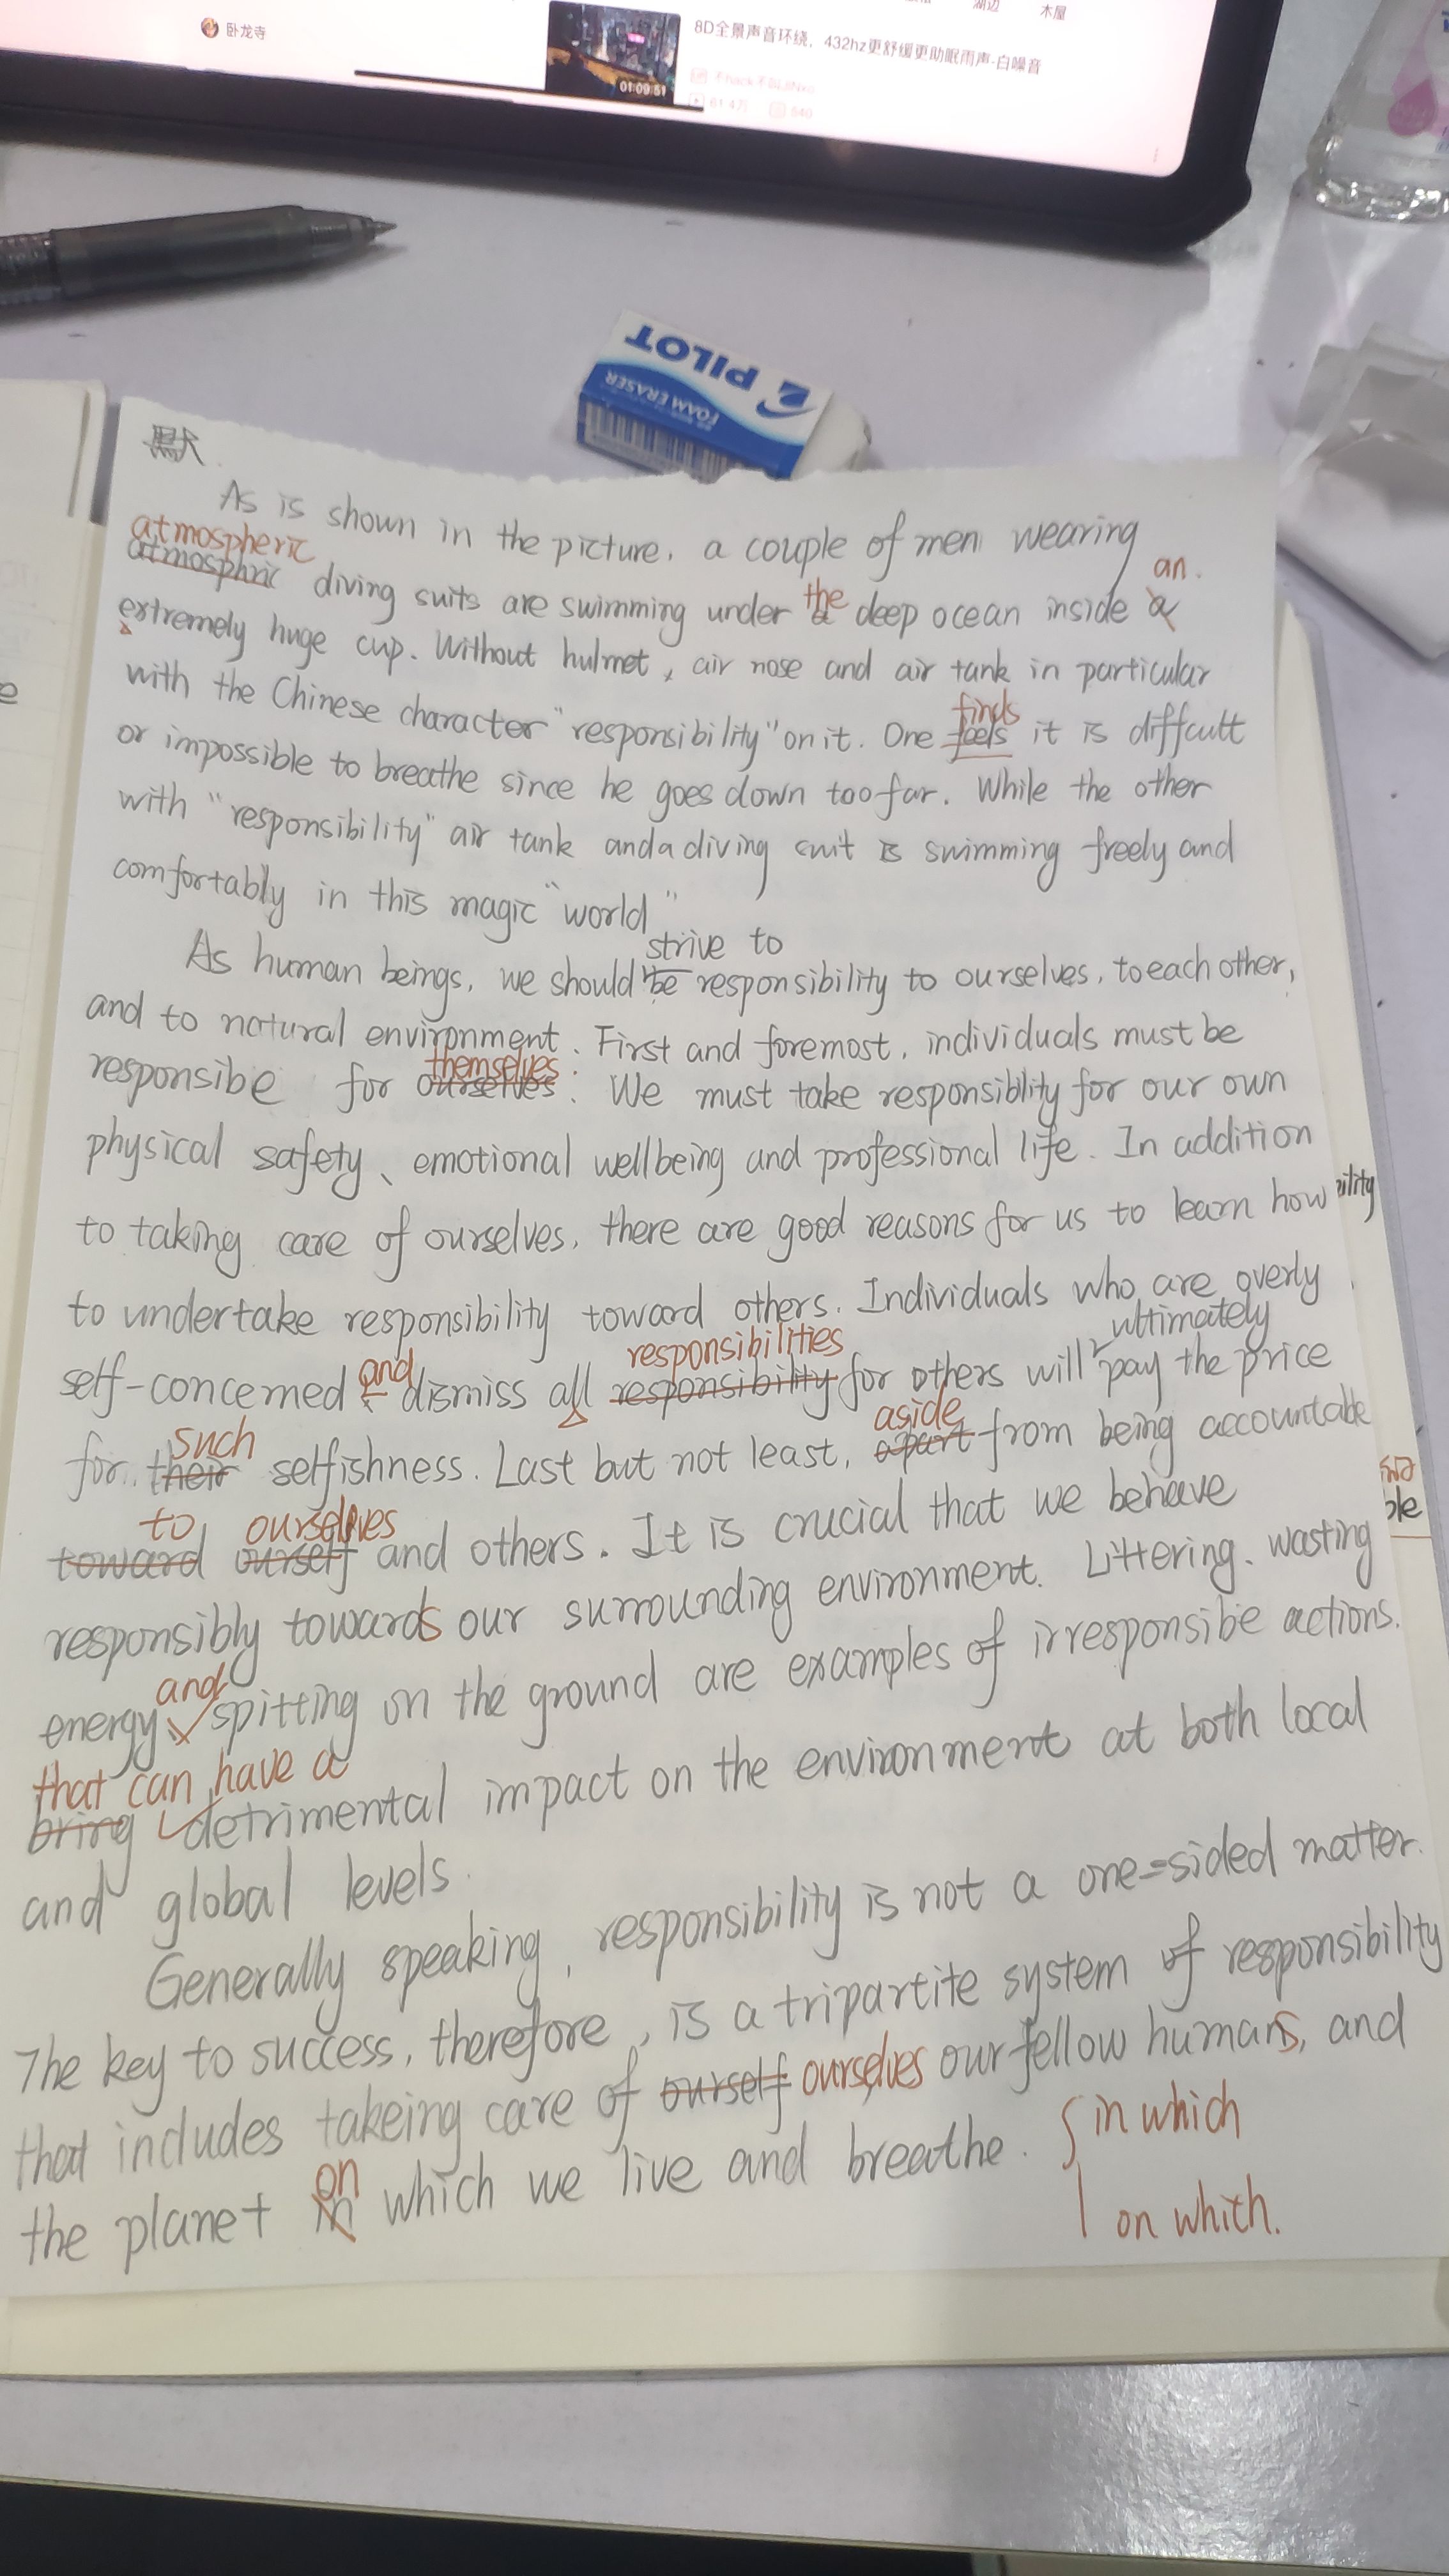 湖边
木屋
卧龙寺
8D全景声音环绕，432hz更舒缓更助眠雨声-白噪音
01:09:51
61.4万
840
PILOT
FOAM ERASER
默
As is shown in the picture, a couple of men wearing
atmospheric an.
atmosphric diving suits are swimming under the deep ocean inside a
extremely huge cup. Without hulmet, air nose and air tank in particular
with the Chinese character "responsibility" on it. One feels it is diffcult
finds
or impossible to breathe since he goes down too far. While the other
with "responsibility" air tank and a diving suit is swimming freely and
comfortably in this magic "world"
strive to
As human beings, we should be responsibility to ourselves, to each other,
and to natural environment. First and foremost, individuals must be
themselves
responsibe for ourselves: We must take responsiblity for our own
physical safety、emotional wellbeing and professional life. In addition
to taking care of ourselves, there are good reasons for us to learn how
to undertake responsibility toward others. Individuals who are overly
responsibilities ultimately
self-concerned and dismiss all responsibility for others will pay the price
such aside
for their selfishness. Last but not least, apart from being accountable
to ourselves
toward ourself and others. It is crucial that we behave
responsibly towards our surrounding environment. Littering、wasting
and
energy spitting on the ground are examples of irresponsibe actions.
that can have a
bring detrimental impact on the environment at both local
and global levels.
Generally speaking, responsibility is not a one-sided matter.
The key to success, therefore, is a tripartite system of responsibility
that includes takeing care of ourself ourselves our fellow humans, and
on
the planet in which we live and breathe.
in which
on which.
ility
ble